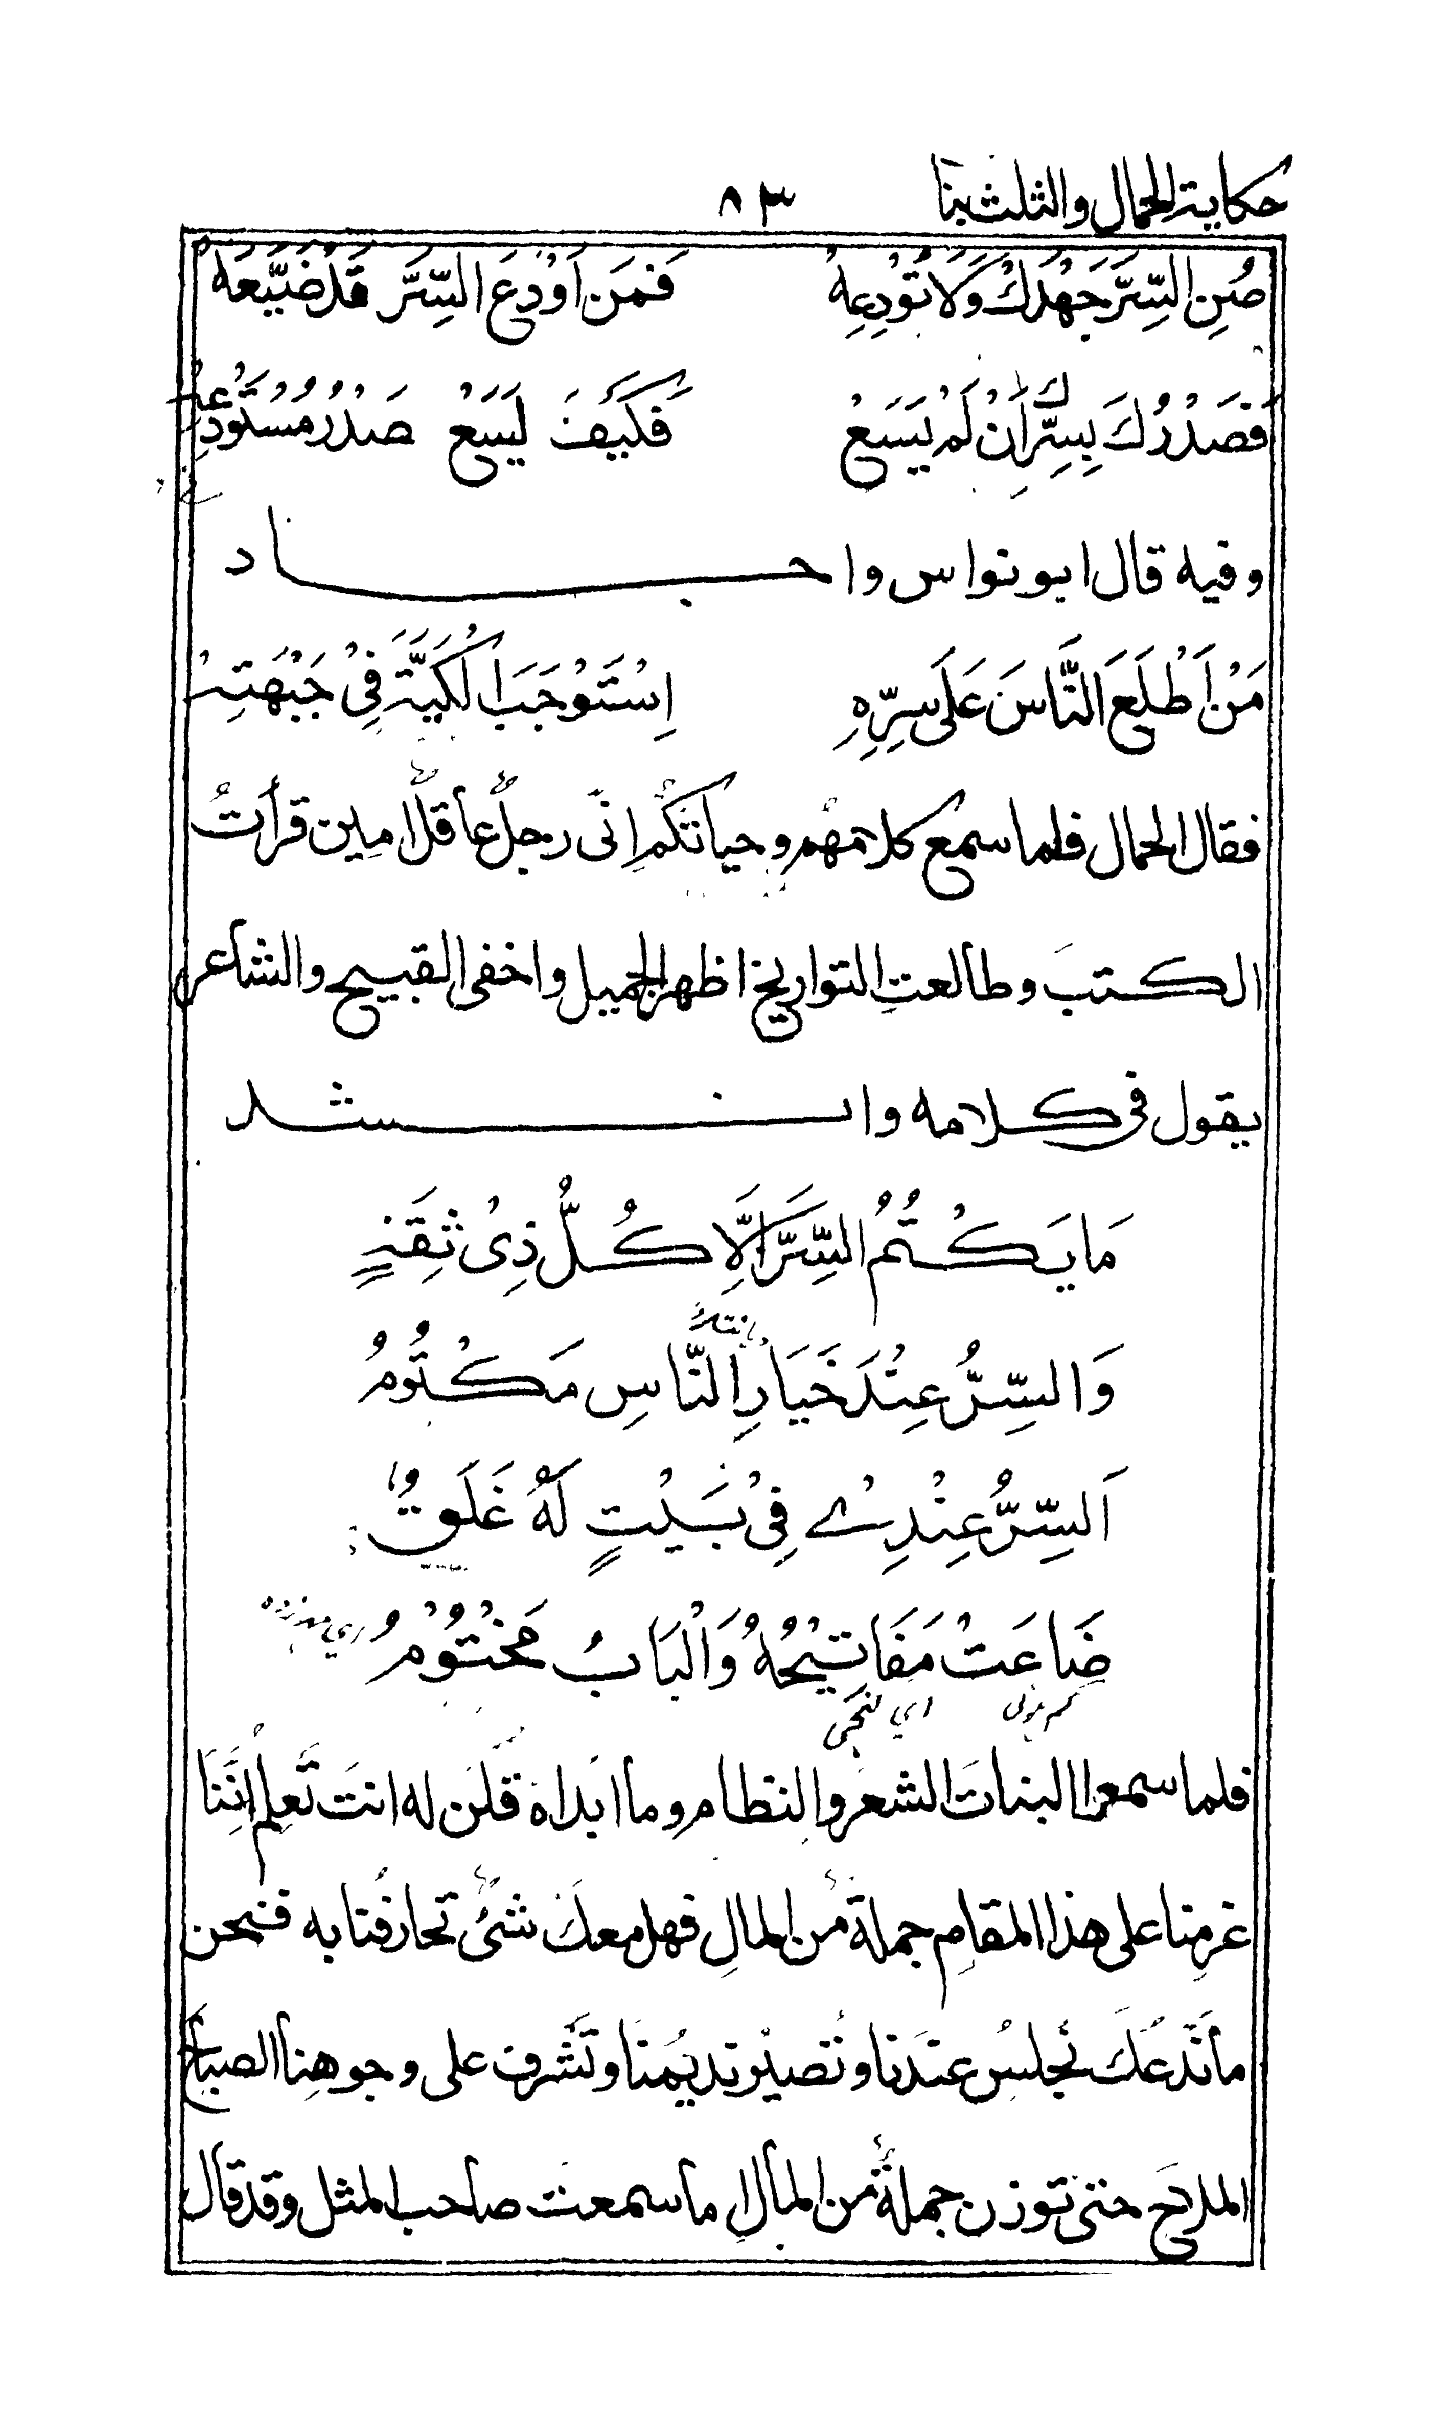 حكاية الحمال والثلث بنات ٨٣
صُنِ السِّرَّ جَهْدَكَ وَلَا تُوْدِعِهُ فَمَن اَوْدَعَ السِّرَّ قَدْ ضَيَّعَهُ
فَصَدْرُكَ بِسِرِّكَ اَنْ لَمْ يَسَعْ فَكَيْفَ لَيَسَعْ صَدْرُ مُسْتَوْدِعِهْ
وفيه قال ابو نواس واجاد
مَنْ اَطْلَعَ النَّاسَ عَلَى سِرِّهِ اِسْتَوْجَبَ الْكَيَّةَ فِيْ جَبْهَتِهْ
فقال الحمال فلما سمع كلامهم وحياتكم انّى رجلٌ عاقلٌ امين قرأتُ
الكتبَ وطالعت التواريخ اظهر الجميل واخفى القبيح والشاعر
يقول فى كلامه وانشد
مَا يَكْتُمُ السِّرَّ اِلَّا كُلُّ ذِيْ ثِقَةٍ
وَالسِّرُّ عِنْدَ خَيَارِ النَّاسِ مَكْتُوْمُ
اَلسِّرُّ عِنْدِيْ فِيْ بَيْتٍ لَهُ غَلَقٌ
ضَاعَتْ مَفَاتِيْحُهُ وَالْبَابُ مَخْتُوْمُ
فلما سمعن البنات الشعر والنظام وما ابداه قلن له انتَ تَعلم انّنا
غرمنا على هذا المقام جملة من المال فهل معكَ شئٌ تحارفنا به فنحن
ما نَدعكَ تجلسُ عندنا وتصيْر نديمنا وتشرف على وجوهنا الصباح
الملاح حتى توزن جملةً من المال اما سمعت صاحب المثل وقد قال